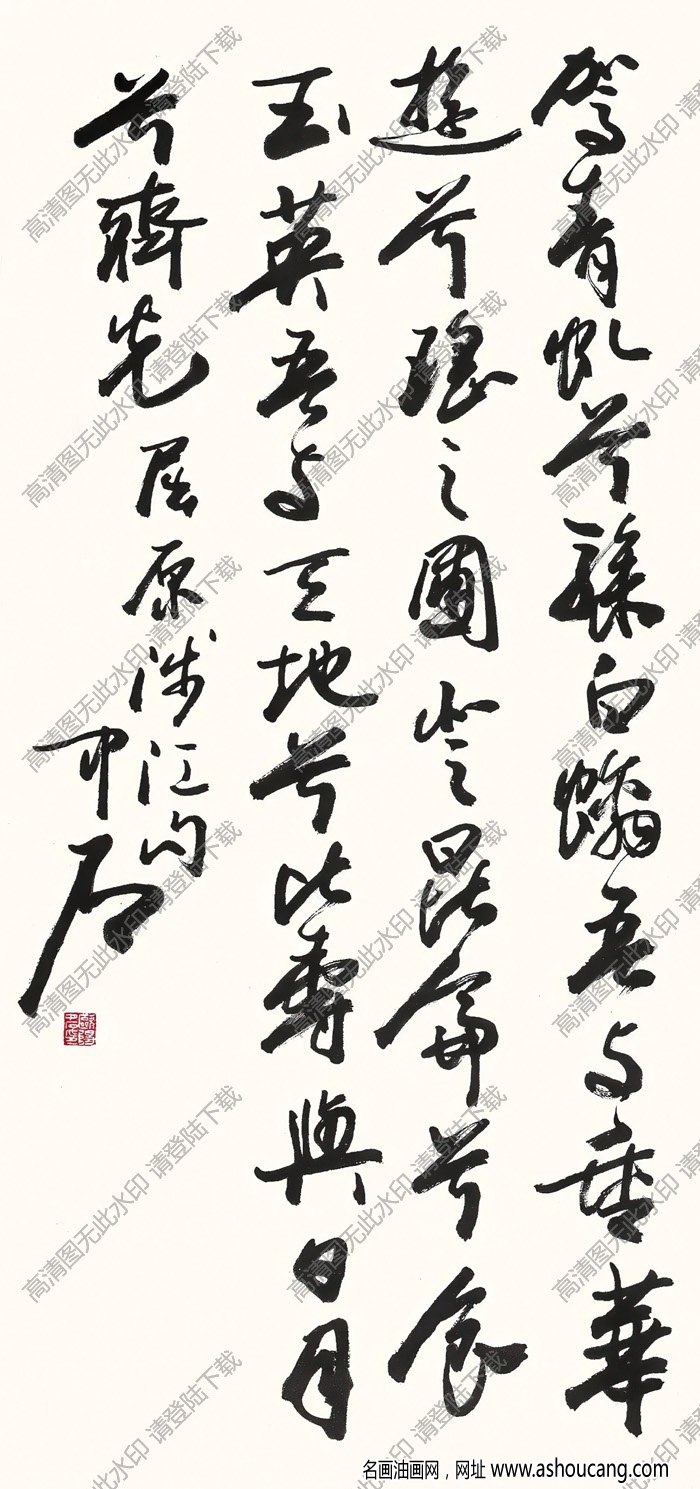 驾青虬兮骖白螭吾与重華
遊兮瑤之圃登昆侖兮食
玉英吾与天地兮比壽與日月
兮齊光
屈原涉江句
中石
高清图无此水印 请登陆下载
名画油画网，网址 www.ashoucang.com